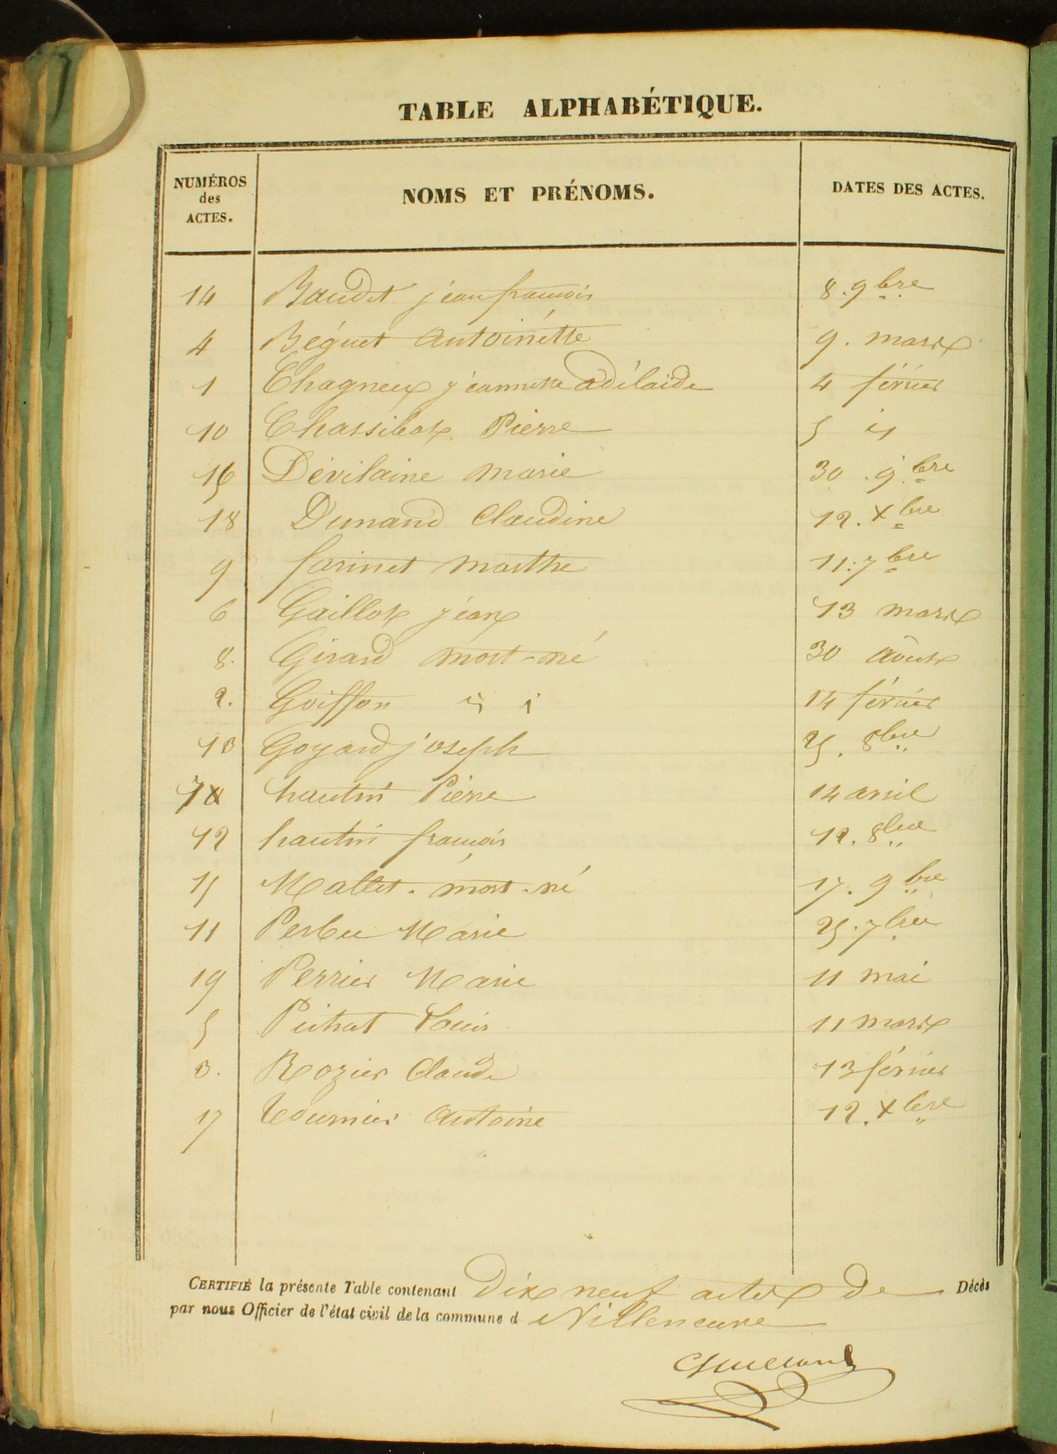 TABLE ALPHABÉTIQUE.
NUMÉROS des ACTES. NOMS ET PRÉNOMS. DATES DES ACTES.
14 Baudet jean françois 8. 9bre
4 Béguet Antoinette 9. mars
1 Chagneux jeannette adélaïde 4 février
10 Pierre 5
16 Dévilaine Marie 30. 9bre
18 Dunand Claudine 12. Xbre
9 farinet Marthe 11. 7bre
6 Gaillot jean 13 mars
8. Girard mort-né 30 août
2. Goiffon 14 février
13 Goyard joseph 25. 8bre
hautin Pierre 14 avril
12 hautin françois 12. 8bre
15 Mallet. mort-né 17. 9bre
11 Marie 25. 7bre
19 Perrier Marie 11 mai
5 Louis 11 mars
3. Rozier Claude 13 février
17 tournier Antoine 12. Xbre
CERTIFIÉ la présente Table contenant Dix neuf actes de Décès
par nous Officier de l'état civil de la commune d Villeneuve